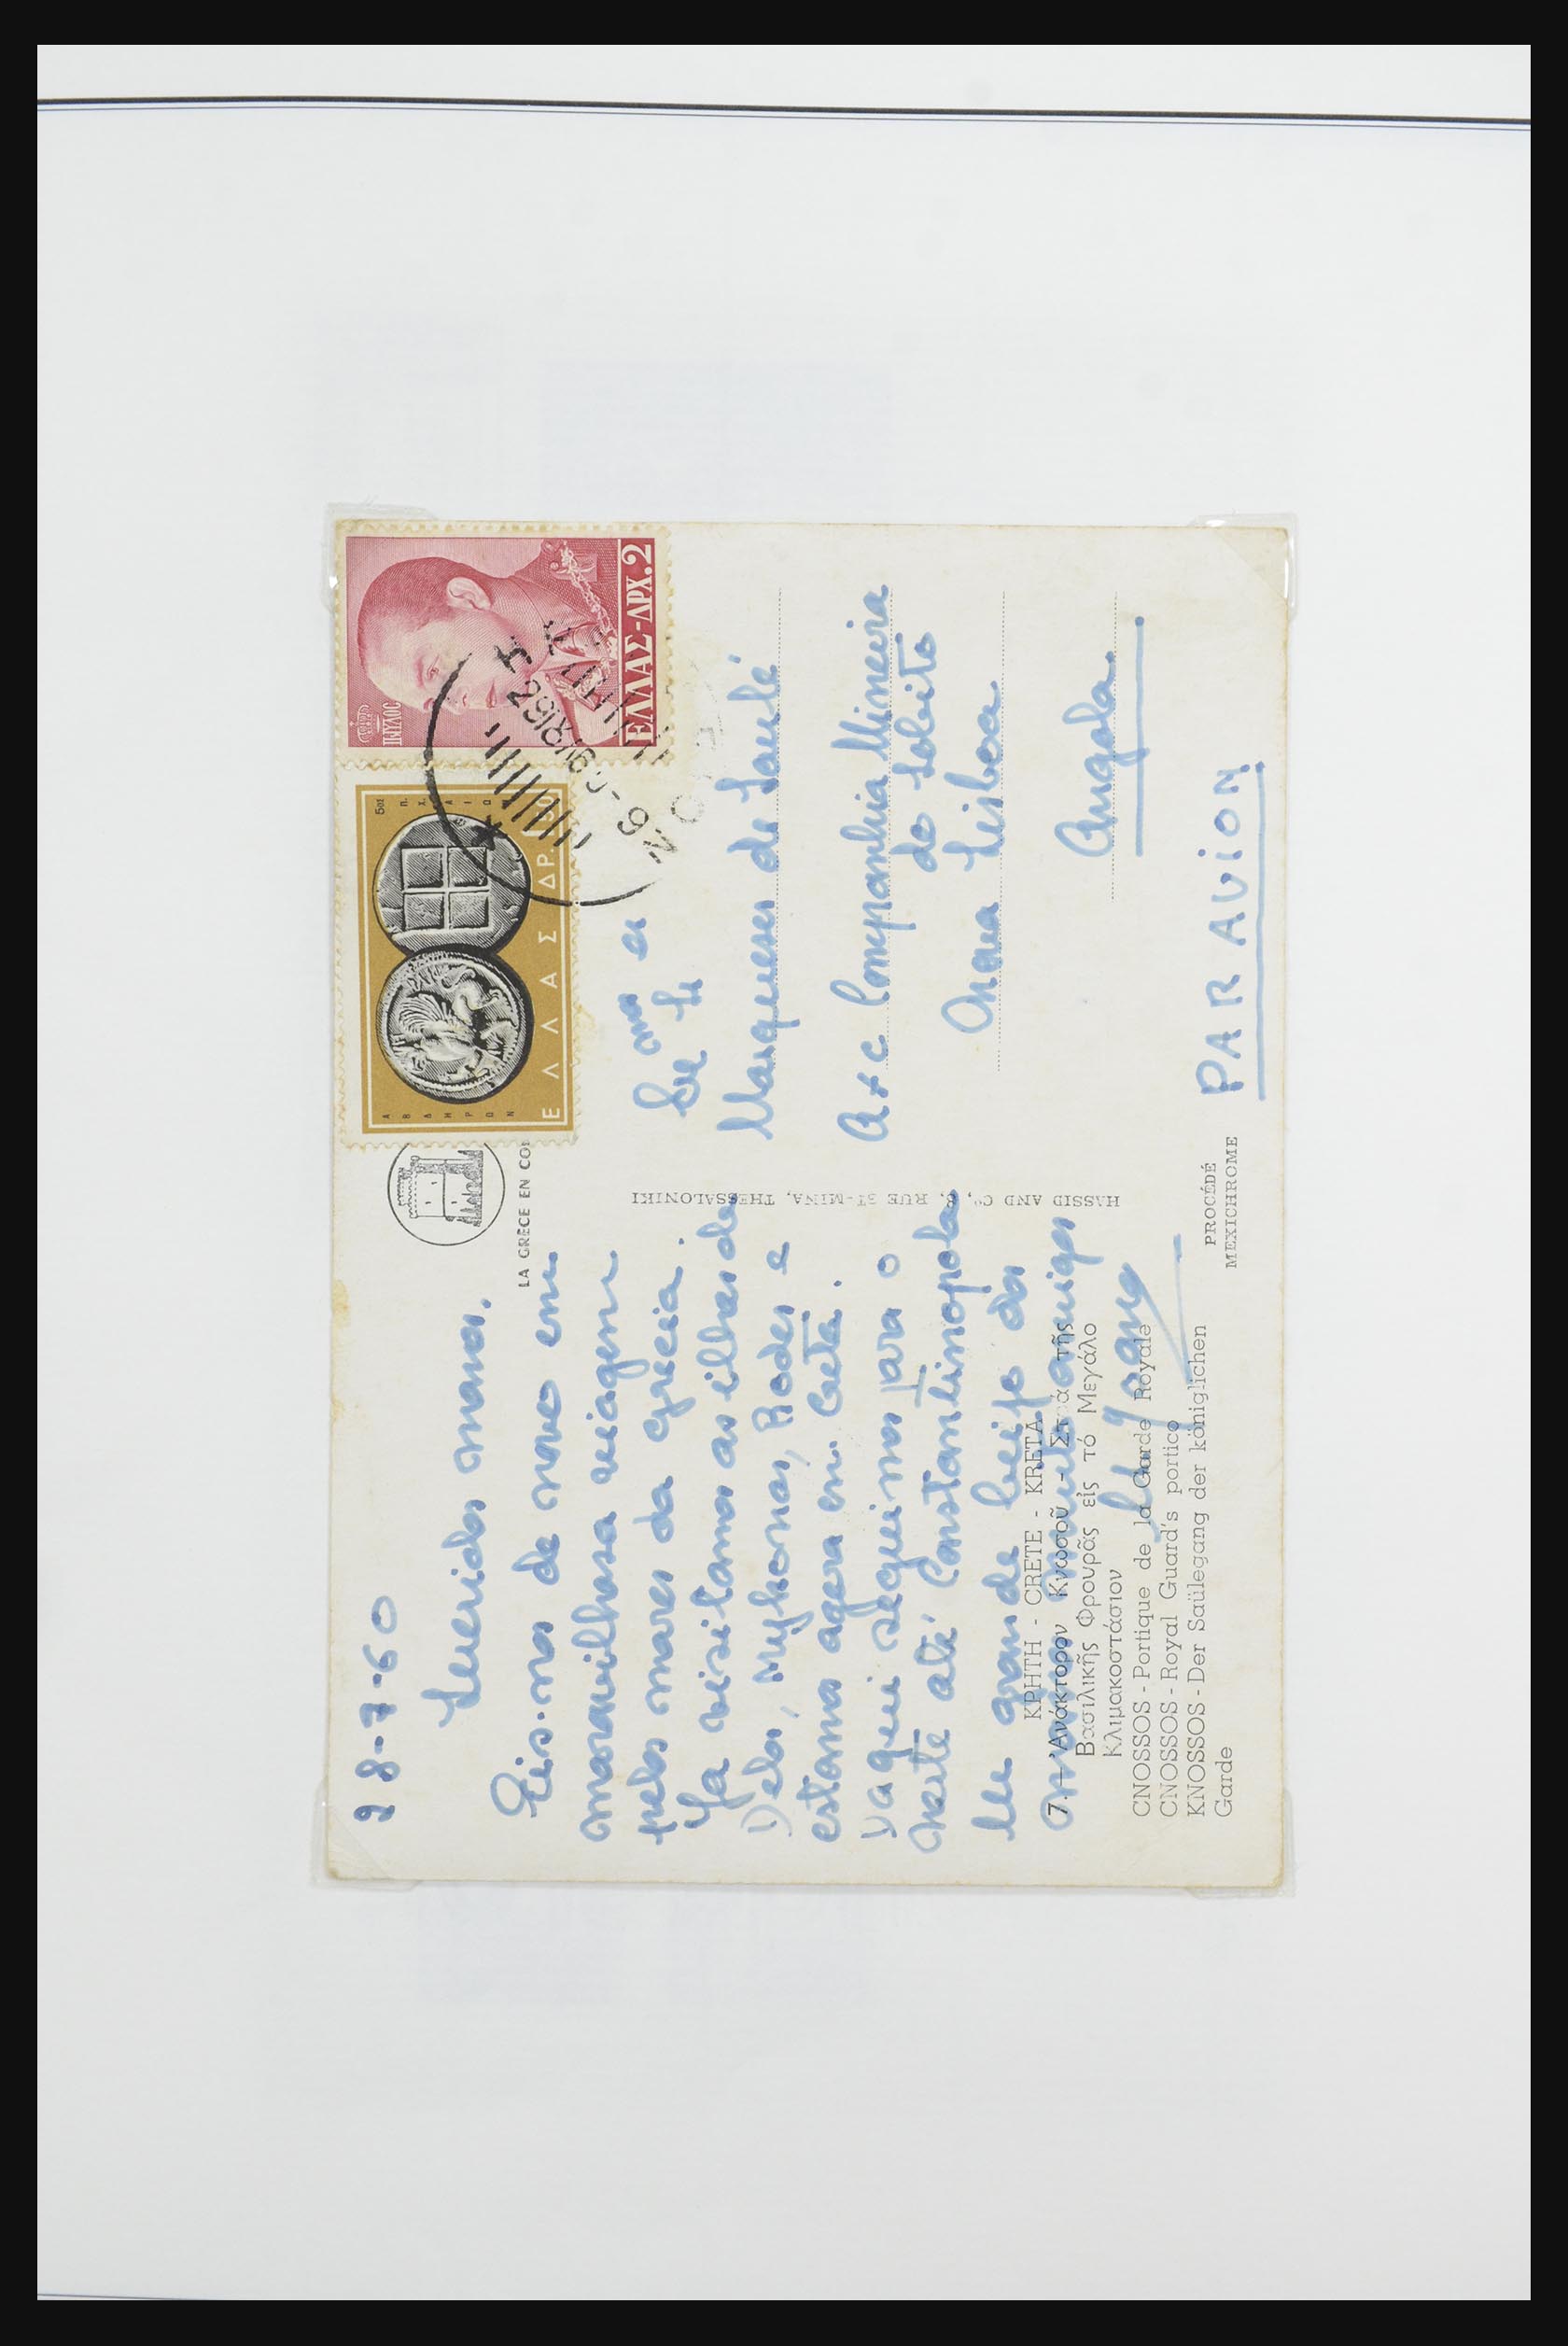 8-7-60
Queridos manos,
Eis-nos de novo em
maravilhosa viagem
pelos mares da Grecia.
Ja visitamos as ilhas de
Delos, Mykonos, Rodes e
estamos agora em Creta.
Daqui seguimos para o
norte até Constantinopola
Um grande beijo dos
manos muito amigos
LA GRÈCE EN CO
HASSID AND Co, RUE ST-MINA, THESSALONIKI
ΚΡΗΤΗ - CRETE - KRETA
7. - Ἀνάκτορον Κνωσοῦ - Στοά τῆς
Βασιλικῆς Φρουρᾶς εἰς τό Μεγάλο
Κλιμακοστάσιον
CNOSSOS - Portique de la Garde Royale
CNOSSOS - Royal Guard's portico
KNOSSOS - Der Saülegang der königlichen
Garde
PROCÉDÉ
MEXICHROME
ΑΒΔΗΡΩΝ
5ος π.Χ. ΑΙΩ
ΕΛΛΑΣ ΔΡ.
ΠΑΥΛΟΣ
ΕΛΛΑΣ-ΔΡΧ.2
Marqueses de
A/c Companhia Mineira
do Lobito
Nova Lisboa
Angola
PAR AVION